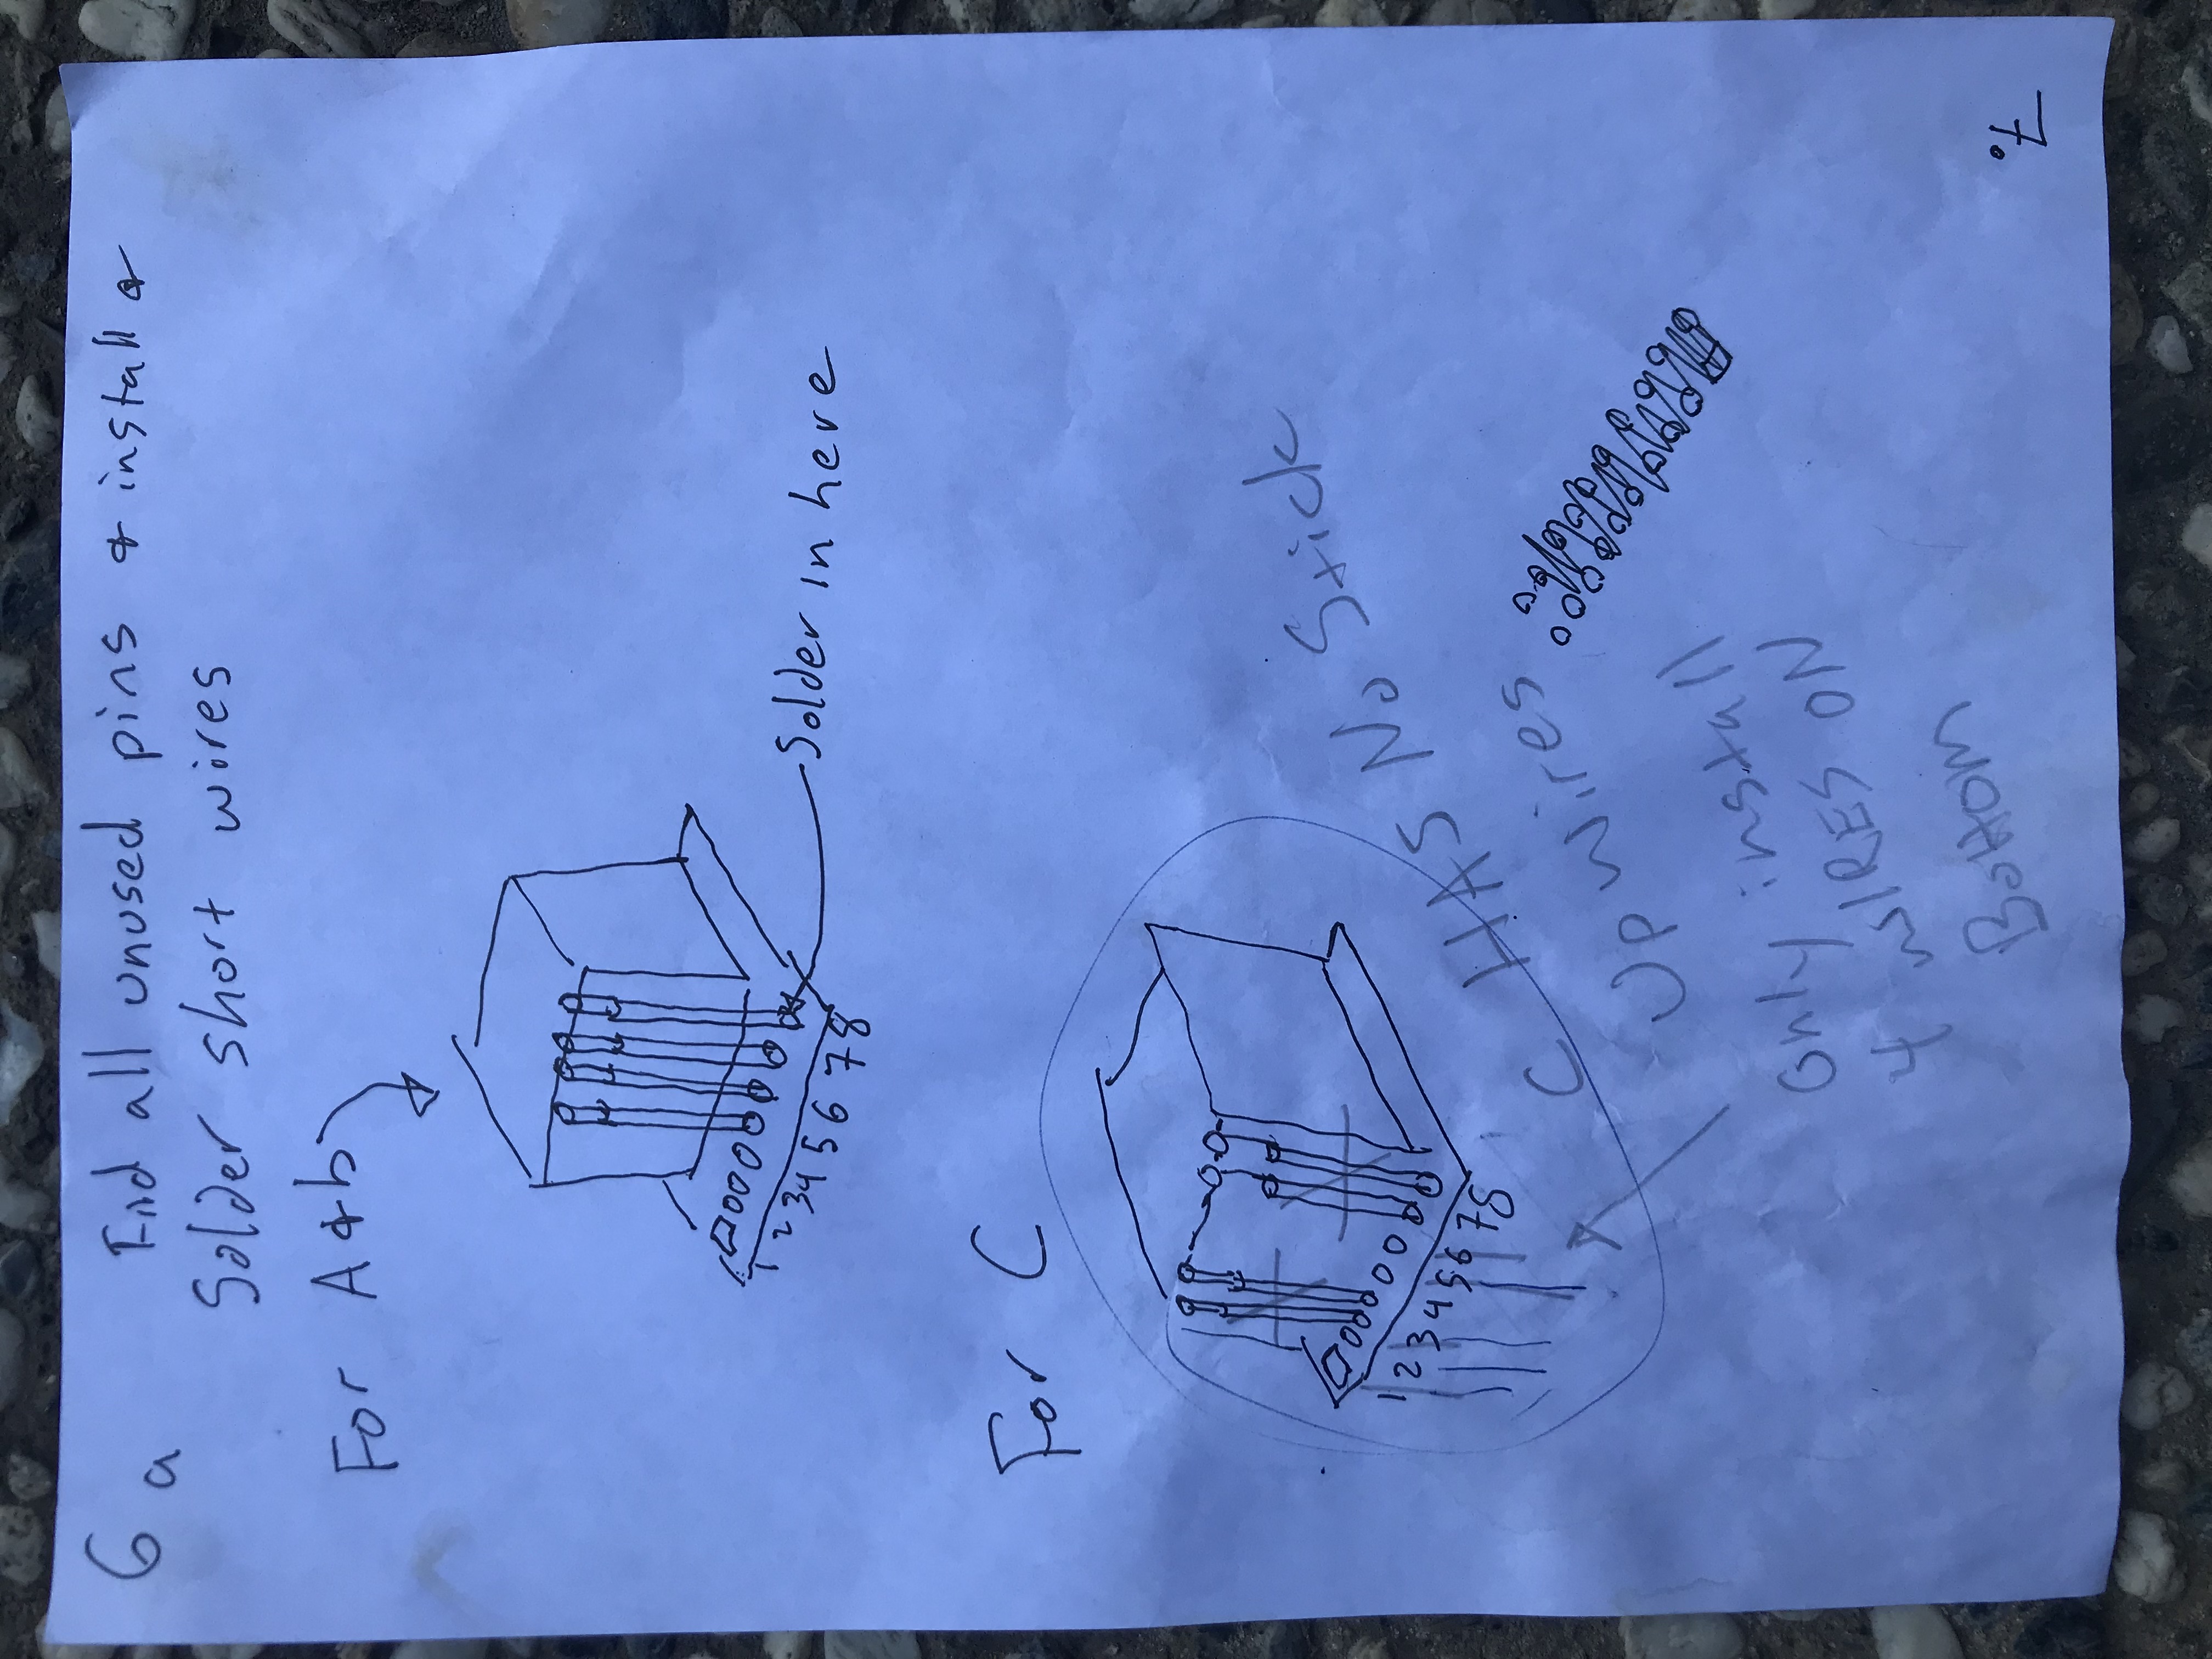 6a Find all unused pins & install &
Solder short wires
For A & b
1 2 3 4 5 6 7 8
Solder in here
For C
1 2 3 4 5 6 7 8
C HAS No Stick
UP wires
Only install
4 WIRES ON
BOTTOM